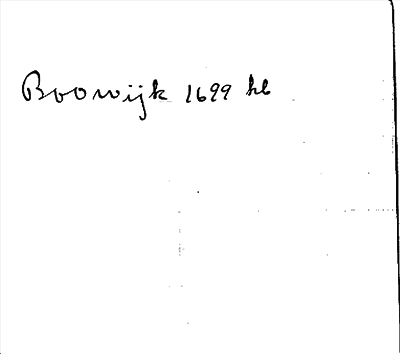 Boowijk 1699 hb